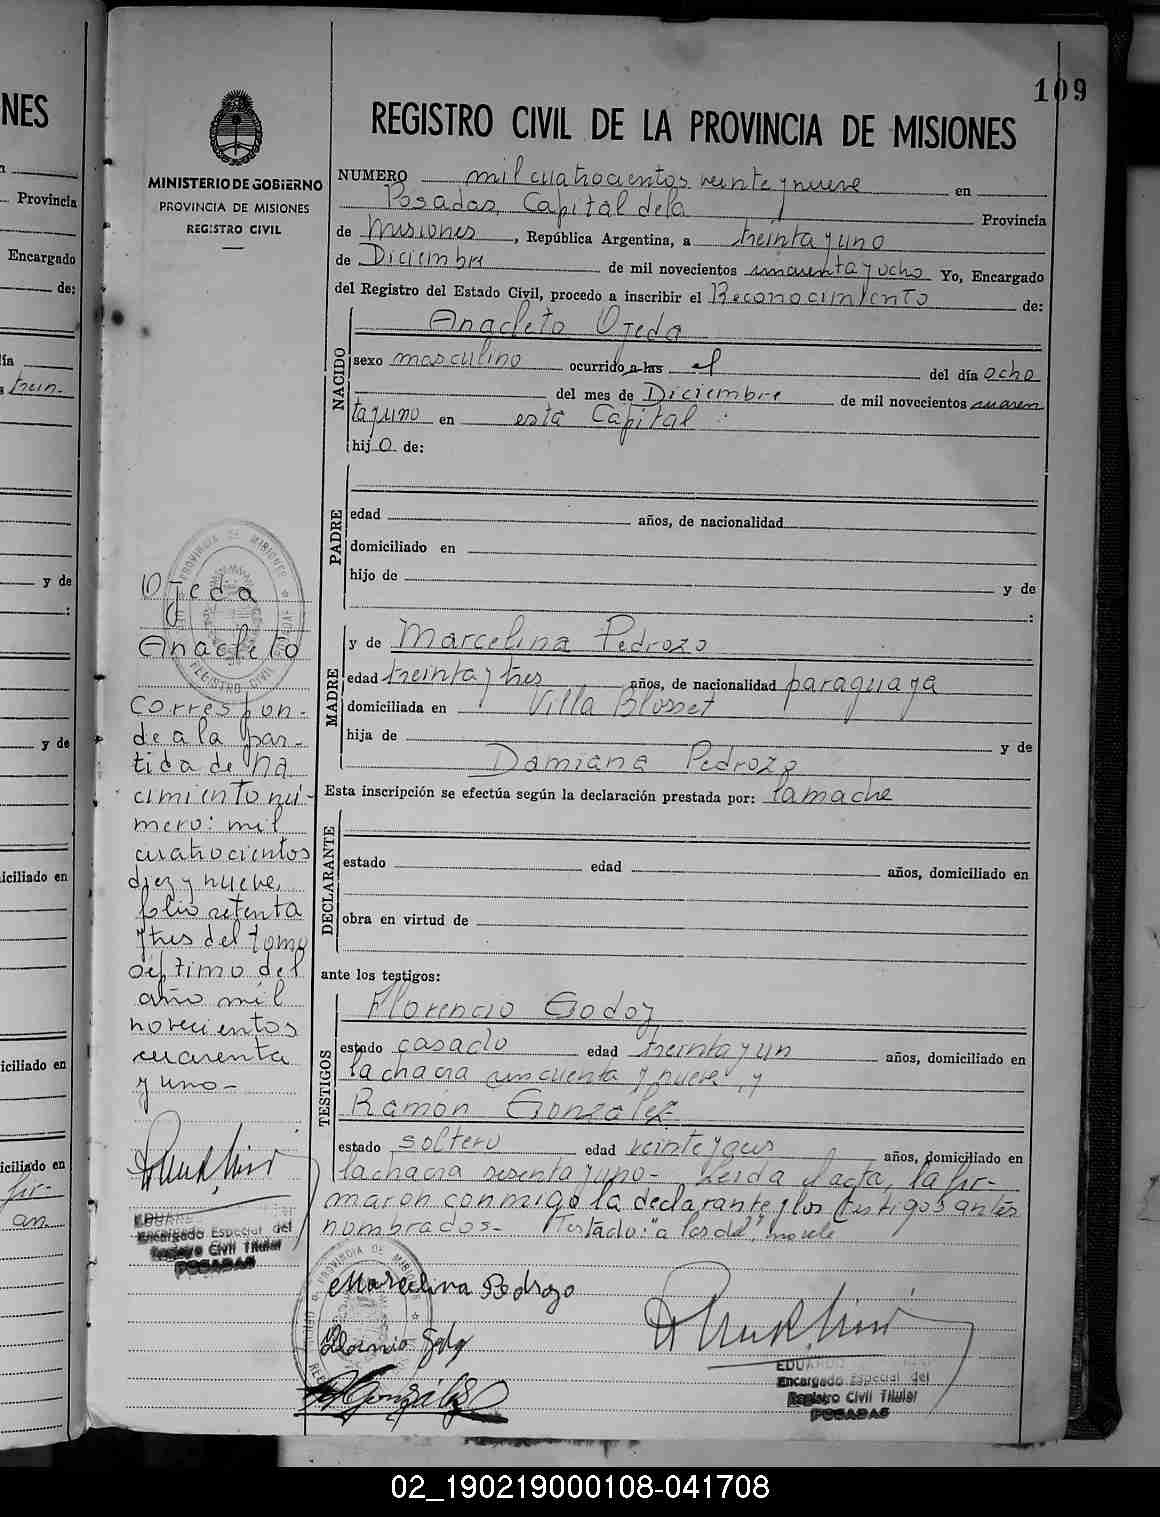 109
REGISTRO CIVIL DE LA PROVINCIA DE MISIONES
MINISTERIO DE GOBIERNO
PROVINCIA DE MISIONES
REGISTRO CIVIL
NUMERO mil cuatrocientos veinte y nueve en
Posadas, Capital de la Provincia
de Misiones, República Argentina, a treinta y uno
de Diciembre de mil novecientos cuarenta y ocho Yo, Encargado
del Registro del Estado Civil, procedo a inscribir el Reconocimiento de:
NACIDO
Anacleto Ojeda
sexo masculino ocurrido a las el del día ocho
del mes de Diciembre de mil novecientos cuaren
ta y uno en esta Capital:
hijo de:
PADRE
edad años, de nacionalidad
domiciliado en
hijo de y de
:
MADRE
y de Marcelina Pedrozo
edad treinta y tres años, de nacionalidad paraguaya
domiciliada en Villa Blosset
hija de y de
Damiana Pedrozo
Esta inscripción se efectúa según la declaración prestada por: la madre
DECLARANTE
estado edad años, domiciliado en
obra en virtud de
ante los testigos:
TESTIGOS
Florencio Godoy
estado casado edad treinta y un años, domiciliado en
la chacra cincuenta y nueve, y
Ramón González
estado soltero edad veinte y seis años, domiciliado en
la chacra sesenta y uno- Leida el acta, la fir-
maron conmigo la declarante y los testigos antes
nombrados- Testado: "a las de",
Marcelina Pedrozo
Gonzáles
EDUARDO
Encargado Especial del
Registro Civil Titular
POSADAS
Ojeda
Anacleto
Correspon-
de a la par-
tida de na
cimiento nú-
mero: mil
cuatrocientos
diez y nueve,
folio setenta
y tres del tomo
séptimo del
año mil
novecientos
cuarenta
y uno-
EDUARDO
Encargado Especial del
Registro Civil Titular
POSADAS
PROVINCIA DE MISIONES
REGISTRO CIVIL
NES
Provincia
Encargado
de:
ía
y de
:
y de
iciliado en
iciliado en
iciliado en
fir-
an
02_190219000108-041708